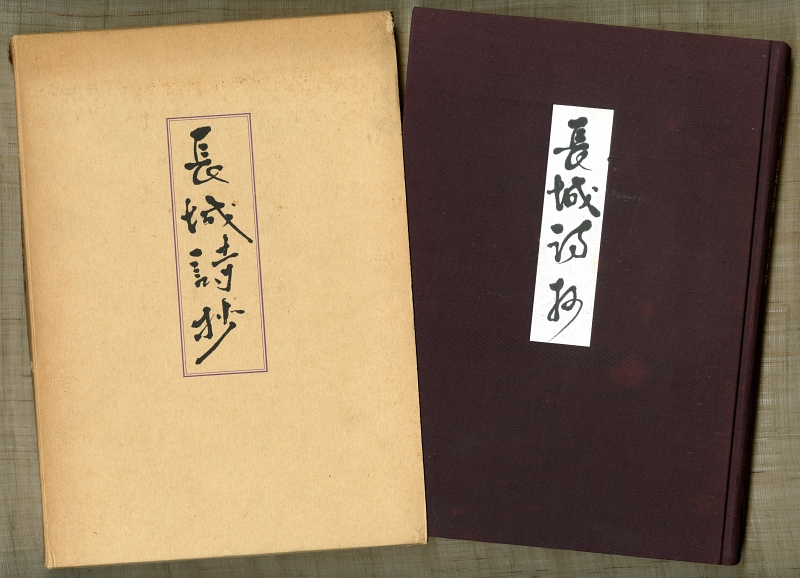 長城詩抄
長城詩抄